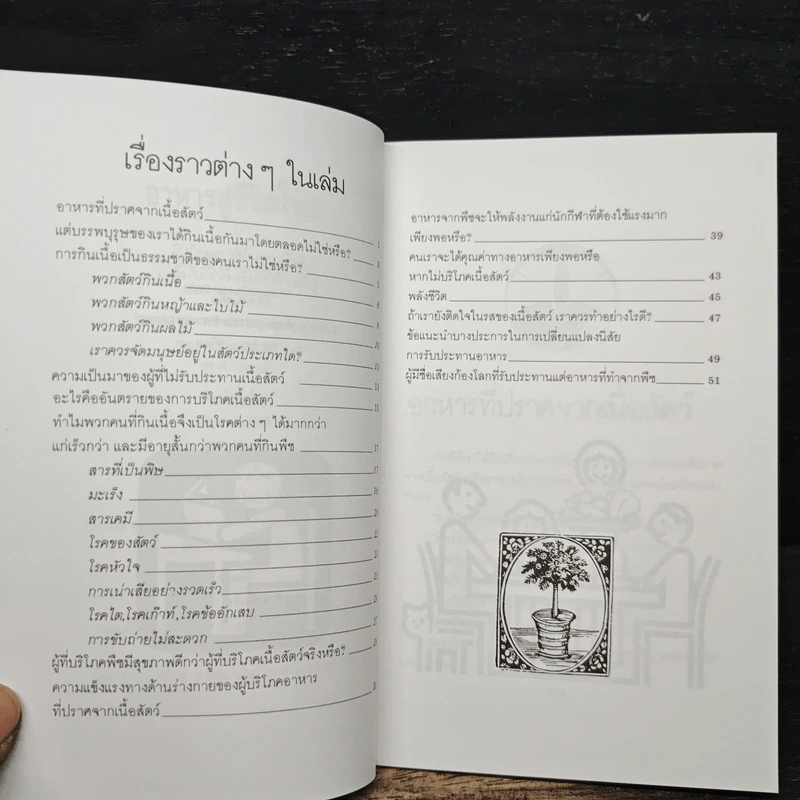 เรื่องราวต่าง ๆ ในเล่ม
อาหารที่ปราศจากเนื้อสัตว์ 1
แต่บรรพบุรุษของเราได้กินเนื้อกันมาโดยตลอดไม่ใช่หรือ?
การกินเนื้อเป็นธรรมชาติของคนเราไม่ใช่หรือ?
พวกสัตว์กินเนื้อ
พวกสัตว์กินหญ้าและใบไม้
พวกสัตว์กินผลไม้
เราควรจัดมนุษย์อยู่ในสัตว์ประเภทใด? 10
ความเป็นมาของผู้ที่ไม่รับประทานเนื้อสัตว์
อะไรคืออันตรายของการบริโภคเนื้อสัตว์
ทำไมพวกคนที่กินเนื้อจึงเป็นโรคต่าง ๆ ได้มากกว่า
แก่เร็วกว่า และมีอายุสั้นกว่าพวกคนที่กินพืช 17
สารที่เป็นพิษ 17
มะเร็ง
สารเคมี 20
โรคของสัตว์
โรคหัวใจ
การเน่าเสียอย่างรวดเร็ว
โรคไต,โรคเก๊าท์,โรคข้ออักเสบ
การขับถ่ายไม่สะดวก
ผู้ที่บริโภคพืชมีสุขภาพดีกว่าผู้ที่บริโภคเนื้อสัตว์จริงหรือ?
ความแข็งแรงทางด้านร่างกายของผู้บริโภคอาหาร
ที่ปราศจากเนื้อสัตว์
อาหารจากพืชจะให้พลังงานแก่นักกีฬาที่ต้องใช้แรงมาก
เพียงพอหรือ? 39
คนเราจะได้คุณค่าทางอาหารเพียงพอหรือ
หากไม่บริโภคเนื้อสัตว์ 43
พลังชีวิต 45
ถ้าเรายังติดใจในรสของเนื้อสัตว์ เราควรทำอย่างไรดี? 47
ข้อแนะนำบางประการในการเปลี่ยนแปลงนิสัย
การรับประทานอาหาร 49
ผู้มีชื่อเสียงก้องโลกที่รับประทานแต่อาหารที่ทำจากพืช 51
อาหารที่ปราศจากเนื้อสัตว์